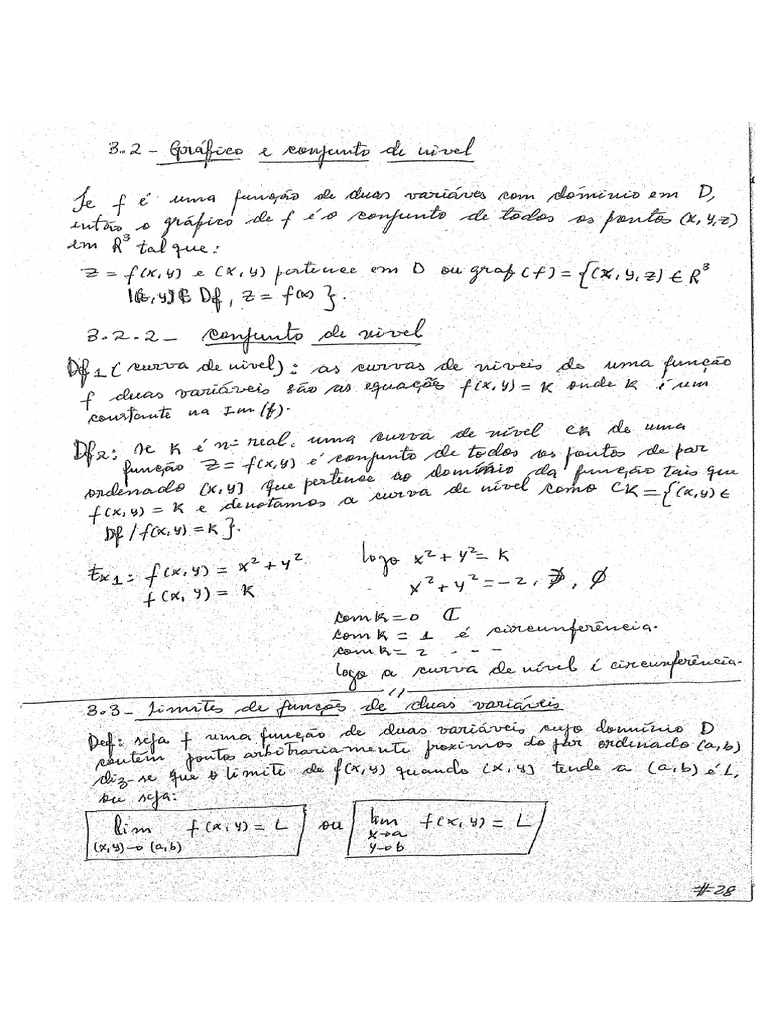 3.2 - Gráfico e conjunto de nivel
Se f é uma função de duas variáves com dóminio em D,
então o gráfico de f é o conjunto de todos os pontos (x, y, z)
em R³ tal que:
Z = f(x, y) e (x, y) pertence em D ou graf(f) = {(x, y, z) ∈ R³
/(x, y) ∈ Df, z = f(x)}.
3.2.2 - conjunto de nivel
Df1 (curva de nivel): as curvas de niveis de uma função
f duas variáveis são as equações f(x, y) = K onde K é um
constante na Im(f).
Df2: se K é nº real, uma curva de nivel CK de uma
função Z = f(x, y) é conjunto de todos os pontos de par
ordenado (x, y) que pertence ao domínio da função tais que
f(x, y) = K e denotamos a curva de nível como CK = {(x, y) ∈
Df / f(x, y) = K}.
Ex1: f(x, y) = x² + y² logo x² + y² = K
f(x, y) = K x² + y² = -2, ∄, ∅
com K = 0
com K = 1 é circunferência.
com K = 2 - - -
logo a curva de nível é circunferência.
3.3 - Limites de função de duas variáveis
Def: seja f uma função de duas variáveis cujo domínio D
contém pontos arbitrariamente proximos do par ordenado (a, b)
diz-se que o limite de f(x, y) quando (x, y) tende a (a, b) é L,
ou seja:
lim f(x, y) = L ou lim f(x, y) = L
(x, y) → (a, b) x → a
y → b
#28